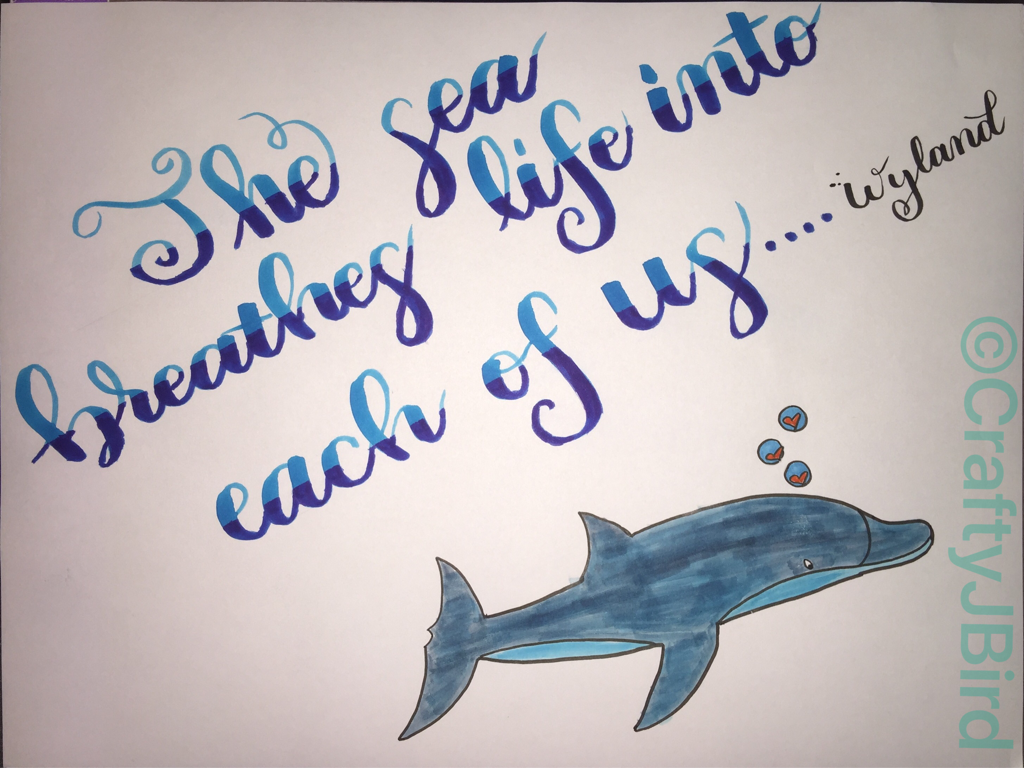 The sea
breathes life into
each of us....
Wyland
©CraftyJBird